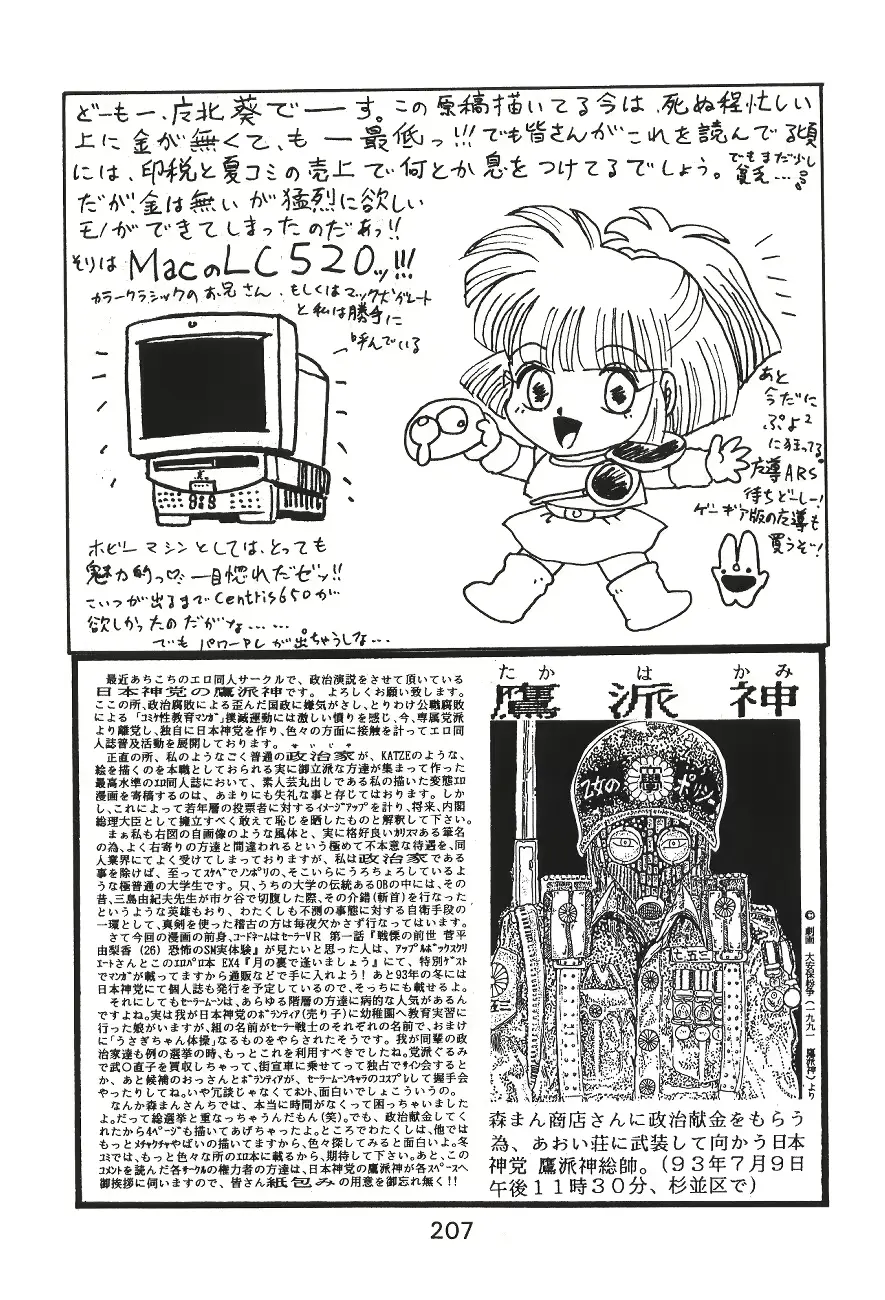 どーもー、広北葵でーーす。この原稿描いてる今は、死ぬ程忙しい
上に金が無くて、もー最低っ!!!でも皆さんがこれを読んでる頃
には、印税と夏コミの売上で何とか息をつけてるでしょう。
でもまだ少し
貧乏…
だが、金は無いが猛烈に欲しい
モノができてしまったのだあっ!!
そりは MacのLC520ッ!!!
カラークラシックのお兄さん、もしくは
と私は勝手に
呼んでいる
あと
今だに
ぷよ2
に狂ってる。
左導ARS
待ちどーしー!
ゲームギア版の左導も
買うぞ!
ホビーマシンとしては、とっても
魅力的っ♡一目惚れだゼッ!!
こいつが出るまでCentris650が
欲しかったのだがな……
でもパワーPCが出ちゃうしな…
最近あちこちのエロ同人サークルで、政治演説をさせて頂いている
日本神党の鷹派神です。よろしくお願い致します。
ここの所、政治腐敗による歪んだ国政に嫌気がさし、とりわけ公職腐敗
による「コミケ性教育マンガ」撲滅運動には激しい憤りを感じ、今、専属党派
より離党し、独自に日本神党を作り、色々の方面に接触を計ってエロ同
人誌普及活動を展開しております。
せいじか
正直の所、私のようなごく普通の政治家が、KATZEのような、
絵を描くのを本職としておられる実に御立派な方達が集まって作った
最高水準のエロ同人誌において、素人芸丸出しである私の描いた変態エロ
漫画を寄稿するのは、あまりにも失礼な事と存じております。しか
し、これによって若年層の投票者に対するイメージアップを計り、将来、内閣
総理大臣として擁立すべく敢えて恥じを晒したものと解釈して下さい。
まぁ私も右図の自画像のような風体と、実に格好良いカリスマある筆名
の為、よく右寄りの方達と間違われるという極めて不本意な待遇を、同
人業界にてよく受けてしまっておりますが、私は政治家である
事を除けば、至ってスケベでノンポリの、そこいらにうろちょろしているよ
うな極普通の大学生です。只、うちの大学の伝統あるOBの中には、その
昔、三島由紀夫先生が市ヶ谷で切腹した際、その介錯(斬首)を行なった
というような英雄もおり、わたくしも不測の事態に対する自衛手段の
一環として、真剣を使った稽古の方は毎夜欠かさず行なってはいます。
さて今回の漫画の前身、コードネームはセーラーVR 第一話『戦慄の前世 菅平
由梨香(26) 恐怖のSM実体験』が見たいと思った人は、アップルボックスクリ
エートさんとこのエロパロ本 EX4『月の裏で逢いましょう』にて、特別ゲスト
でマンガが載ってますから通販などで手に入れよう!あと93年の冬には
日本神党にて個人誌も発行を予定しているので、そっちにも載せるよ。
それにしてもセーラームーンは、あらゆる階層の方達に病的な人気があるん
ですよね。実は我が日本神党のボランティア(売り子)に幼稚園へ教育実習に
行った娘がいますが、組の名前がセーラー戦士のそれぞれの名前で、おまけ
に「うさぎちゃん体操」なるものをやらされたそうです。我が同輩の政
治家達も例の選挙の時、もっとこれを利用すべきでしたね。党派ぐるみ
で武〇直子を買収しちゃって、街宣車に乗せてって独占でサイン会すると
か、あと候補のおっさんとボランティアが、セーラームーンキャラのコスプレして握手会
やったりしてね。いや冗談じゃなくてホント、面白いでしょこういうの。
なんか森まんさんちでは、本当に時間がなくって困っちゃいました
よ。だって総選挙と重なっちゃうんだもん(笑)。でも、政治献金してく
れたから4ページも描いてあげちゃったよ。ところでわたくしは、他では
もっとメチャクチャやばいの描いてますから、色々探してみると面白いよ。冬
コミでは、もっと色々な所のエロ本に載るから、期待して下さい。あと、この
コメントを読んだ各サークルの権力者の方達は、日本神党の鷹派神が各スペースへ
御挨拶に伺いますので、皆さん紙包みの用意を御忘れ無く!!
たか は かみ
鷹派神
乙女の ポリシー
七五三
©劇画 大安保粉争(一九九一 鷹派神)より
森まん商店さんに政治献金をもらう
為、あおい荘に武装して向かう日本
神党 鷹派神総帥。(93年7月9日
午後11時30分、杉並区で)
207